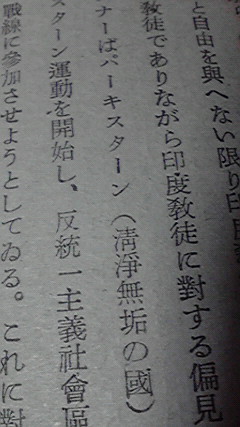 と自由を與へない限り印度
敎徒でありながら印度敎徒に對する偏見
ナーはパーキスターン（淸淨無垢の國）
スターン運動を開始し、反統一主義社會區
戰線に參加させようとしてゐる。これに對